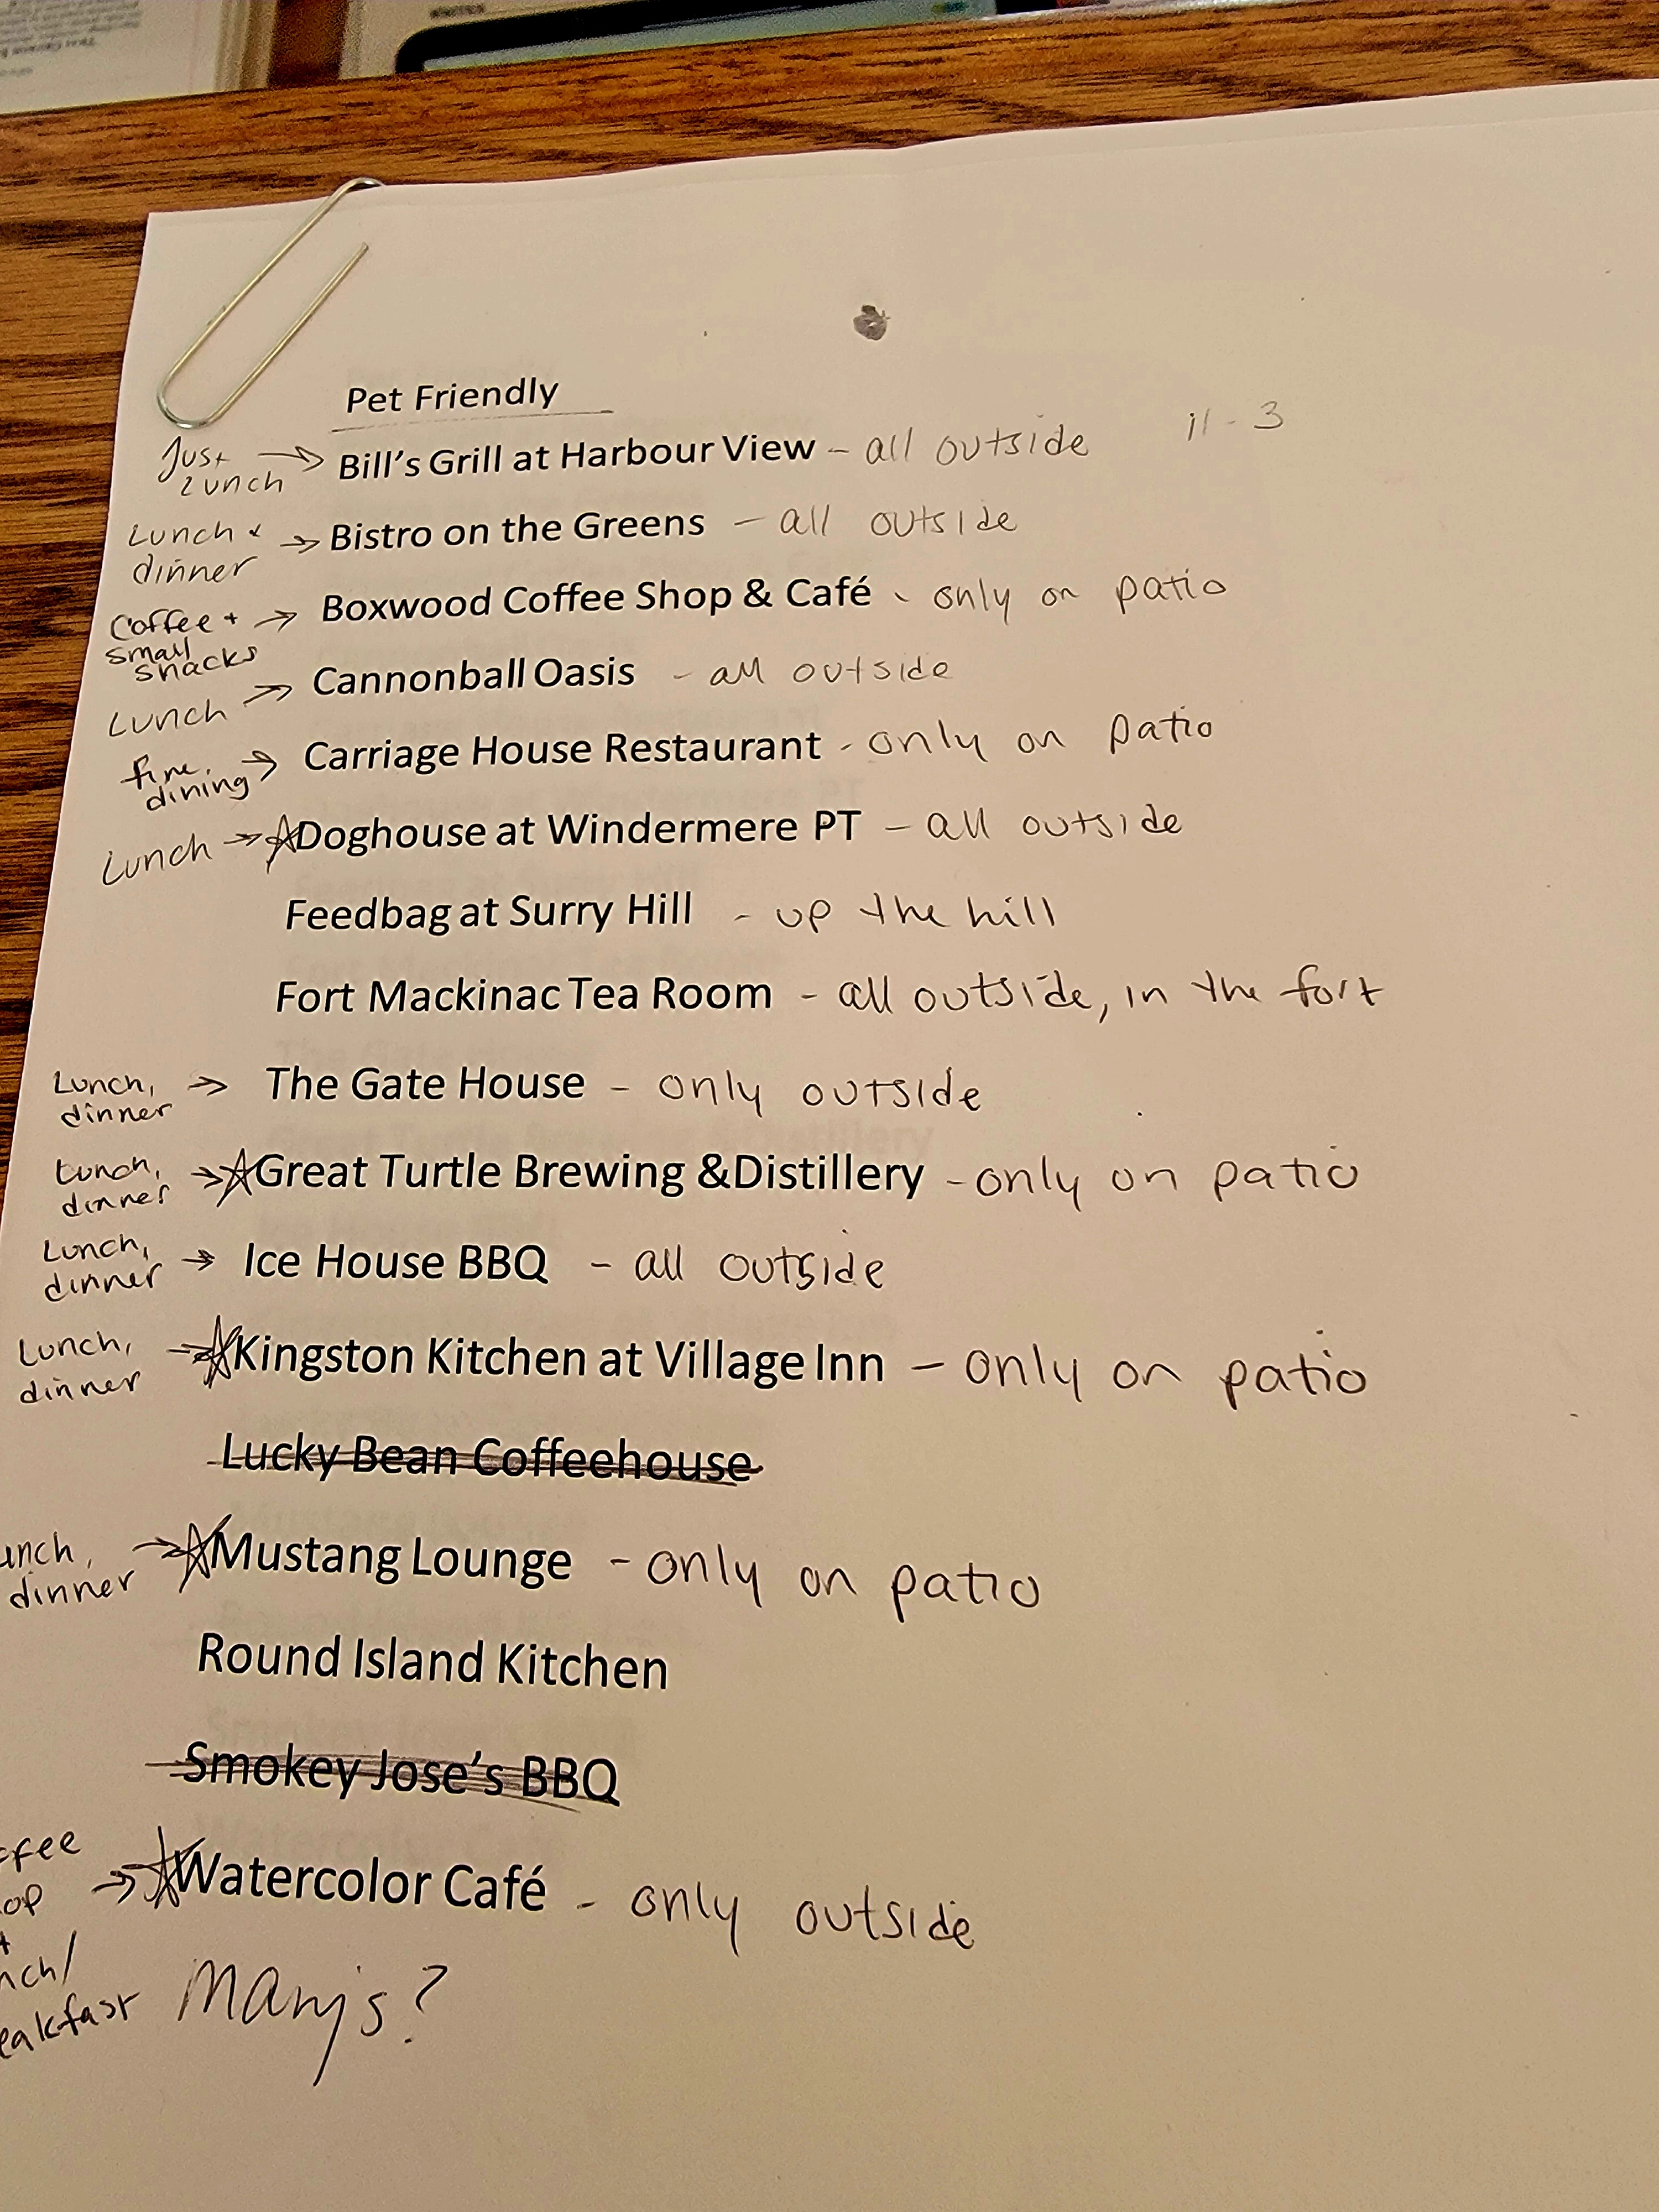 Pet Friendly
Just Lunch → Bill's Grill at Harbour View - all outside 11 - 3
Lunch + dinner → Bistro on the Greens - all outside
Coffee + small snacks → Boxwood Coffee Shop & Café - only on patio
Lunch → Cannonball Oasis - all outside
fine dining → Carriage House Restaurant - only on patio
Lunch → ☆ Doghouse at Windermere PT - all outside
Feedbag at Surry Hill - up the hill
Fort Mackinac Tea Room - all outside, in the fort
Lunch, dinner → The Gate House - only outside
Lunch, dinner → ☆ Great Turtle Brewing &Distillery - only on patio
Lunch, dinner → Ice House BBQ - all outside
Lunch, dinner → ☆ Kingston Kitchen at Village Inn - only on patio
Lucky Bean Coffeehouse
unch, dinner → ☆ Mustang Lounge - only on patio
Round Island Kitchen
Smokey Jose's BBQ
ffee op + nch/ eakfast → ☆ Watercolor Café - only outside